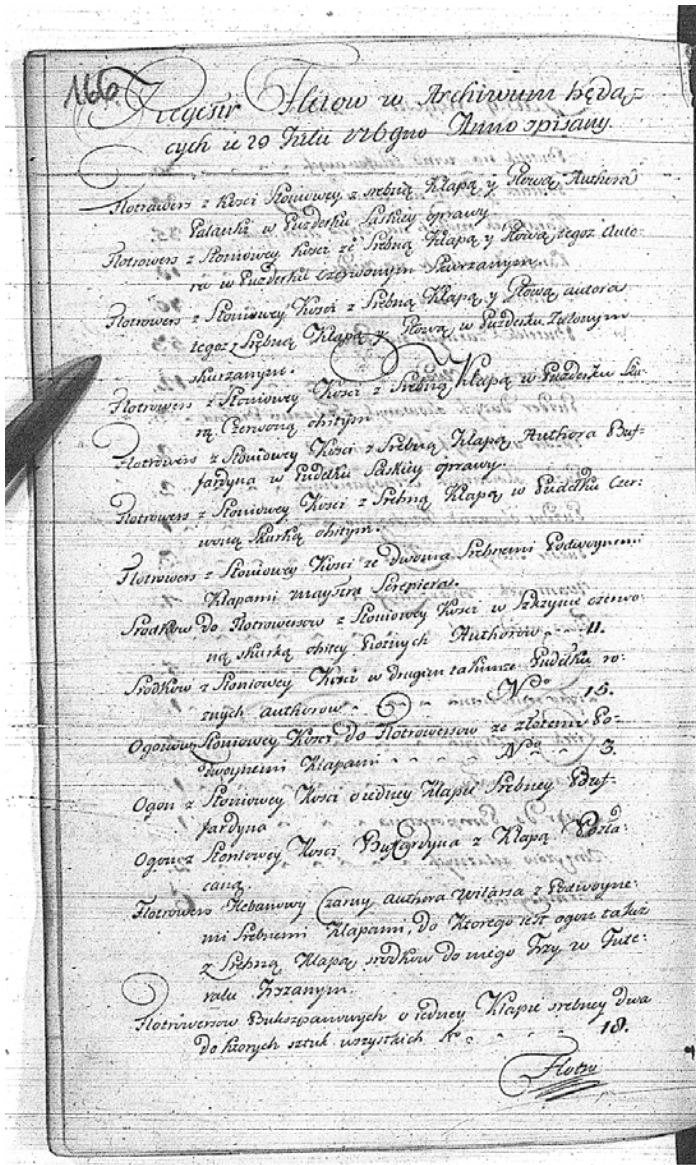 166.
Regestr Fletow w Archiwum będą=
cych d 29 Julii 1726gno Anno spisany.
Flotrawers z Kosci Słoniowey z srebną Kłapą y Głową, Authora
Palanki w Puzderku Saskiey oprawy
Flotrowers z Słoniowey Kosci ze Srebną Kłapą y Głową tegoz Auto:
ra w Puzderku czerwonym Skurzanym.
Flotrowers z Słoniowey Kosci z Srebną Kłapą y Głową autora
tegoz z Srebną Kłapą y Głową w Puzderku Zielonym
skurzanym.
Flotrowers z Słoniowey Kosci z Srebną Kłapą w Puzderku Sku=
rą Czerwoną obitym
Flotrowers z Słoniowey Kosci z Srebną Kłapą Authora Buf=
fardyna w Pudełku Saskiey oprawy.
Flotrowers z Słoniowey Kosci z Srebną Kłapą w Pudełku Czer:
woną Skurką obitym.
Flotrowers z Słoniowey Kosci ze dwoma Srebnemi Podwoynemi
Kłapami maystra Screpiera.
Srodkow do Flotrowersow z Słoniowey Kosci w Szkrzynce czerwo
ną skurką obitey Roznych Authorow 11.
Srodkow z Słoniowey Kosci w drugim takimze Pudełku ro:
znych authorow Nro 15.
Ogonow Słoniowey Kosci, do Flotrowersow ze złotemi Po=
dwoynemi Kłapami Nro 3.
Ogon z Słoniowey Kosci o iedney Kłapie Srebney Buf=
fardyna
Ogon z Słoniowey Kosci Buffardyna z Kłapą Pozła:
caną.
Flotrowers Hebanowy Czarny authora Wilarsa z Podwoyne:
mi Srebnemi Kłapami, do Ktorego iest ogon takiż
z Srebną Kłapą, srodkow do niego Trzy w Fute:
rału Trzanym.
Flotrowersow Bukszpanowych o iedney Kłapie srebney dwa
do ktorych sztuk wszystkich No 18.
Flotro